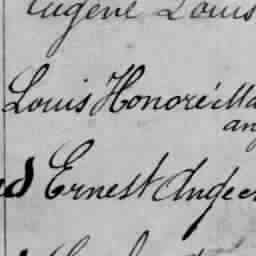 Eugène Louis
Louis Honoré Ma
an
Ernest Ange